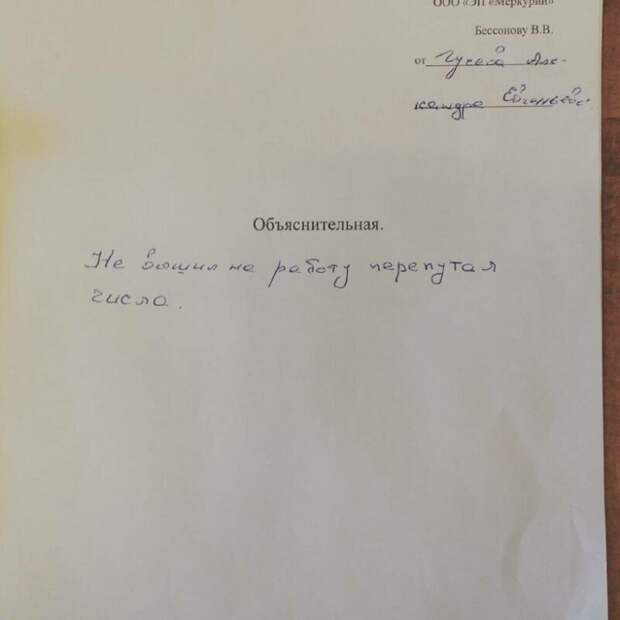 ООО «ЭП «Меркурий»
Бессонову В.В.
от Гусева Але-
ксандра Евгеньевос
Объяснительная.
Не вошил на работу перепутал
числа.